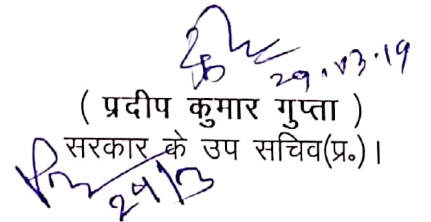 29.03.19
( प्रदीप कुमार गुप्ता )
सरकार के उप सचिव(प्र०)।
29/3